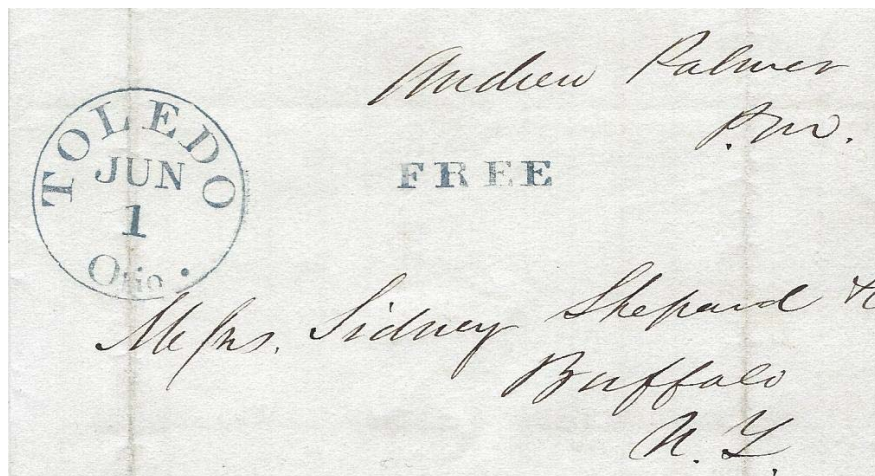 Andrew Palmer
P.M.
TOLEDO
JUN
1
Ohio
FREE
Messrs. Sidney Shepard &
Buffalo
N.Y.